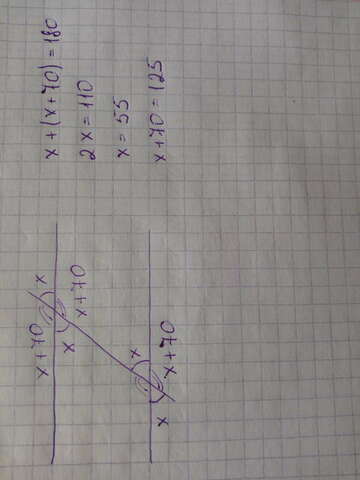 x + (x + 70) = 180
2x = 110
x = 55
x + 70 = 125
x + 70
x
x
x + 70
x
x
x + 70